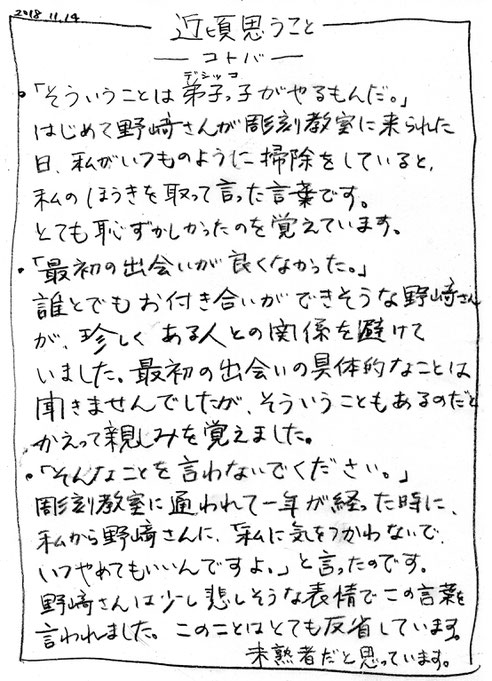 2018.11.14
近頃思うこと
― コトバ ―
デシッコ
・「そういうことは弟子っ子がやるもんだ。」
はじめて野﨑さんが彫刻教室に来られた
日、私がいつものように掃除をしていると、
私のほうきを取って言った言葉です。
とても恥ずかしかったのを覚えています。
・「最初の出会いが良くなかった。」
誰とでもお付き合いができそうな野﨑さん
が、珍しくある人との関係を避けて
いました。最初の出会いの具体的なことは
聞きませんでしたが、そういうこともあるのだと
かえって親しみを覚えました。
・「そんなことを言わないでください。」
彫刻教室に通われて一年が経った時に、
私から野﨑さんに、「私に気をつかわないで、
いつやめてもいいんですよ。」と言ったのです。
野﨑さんは少し悲しそうな表情でこの言葉を
言われました。このことはとても反省しています。
未熟者だと思っています。